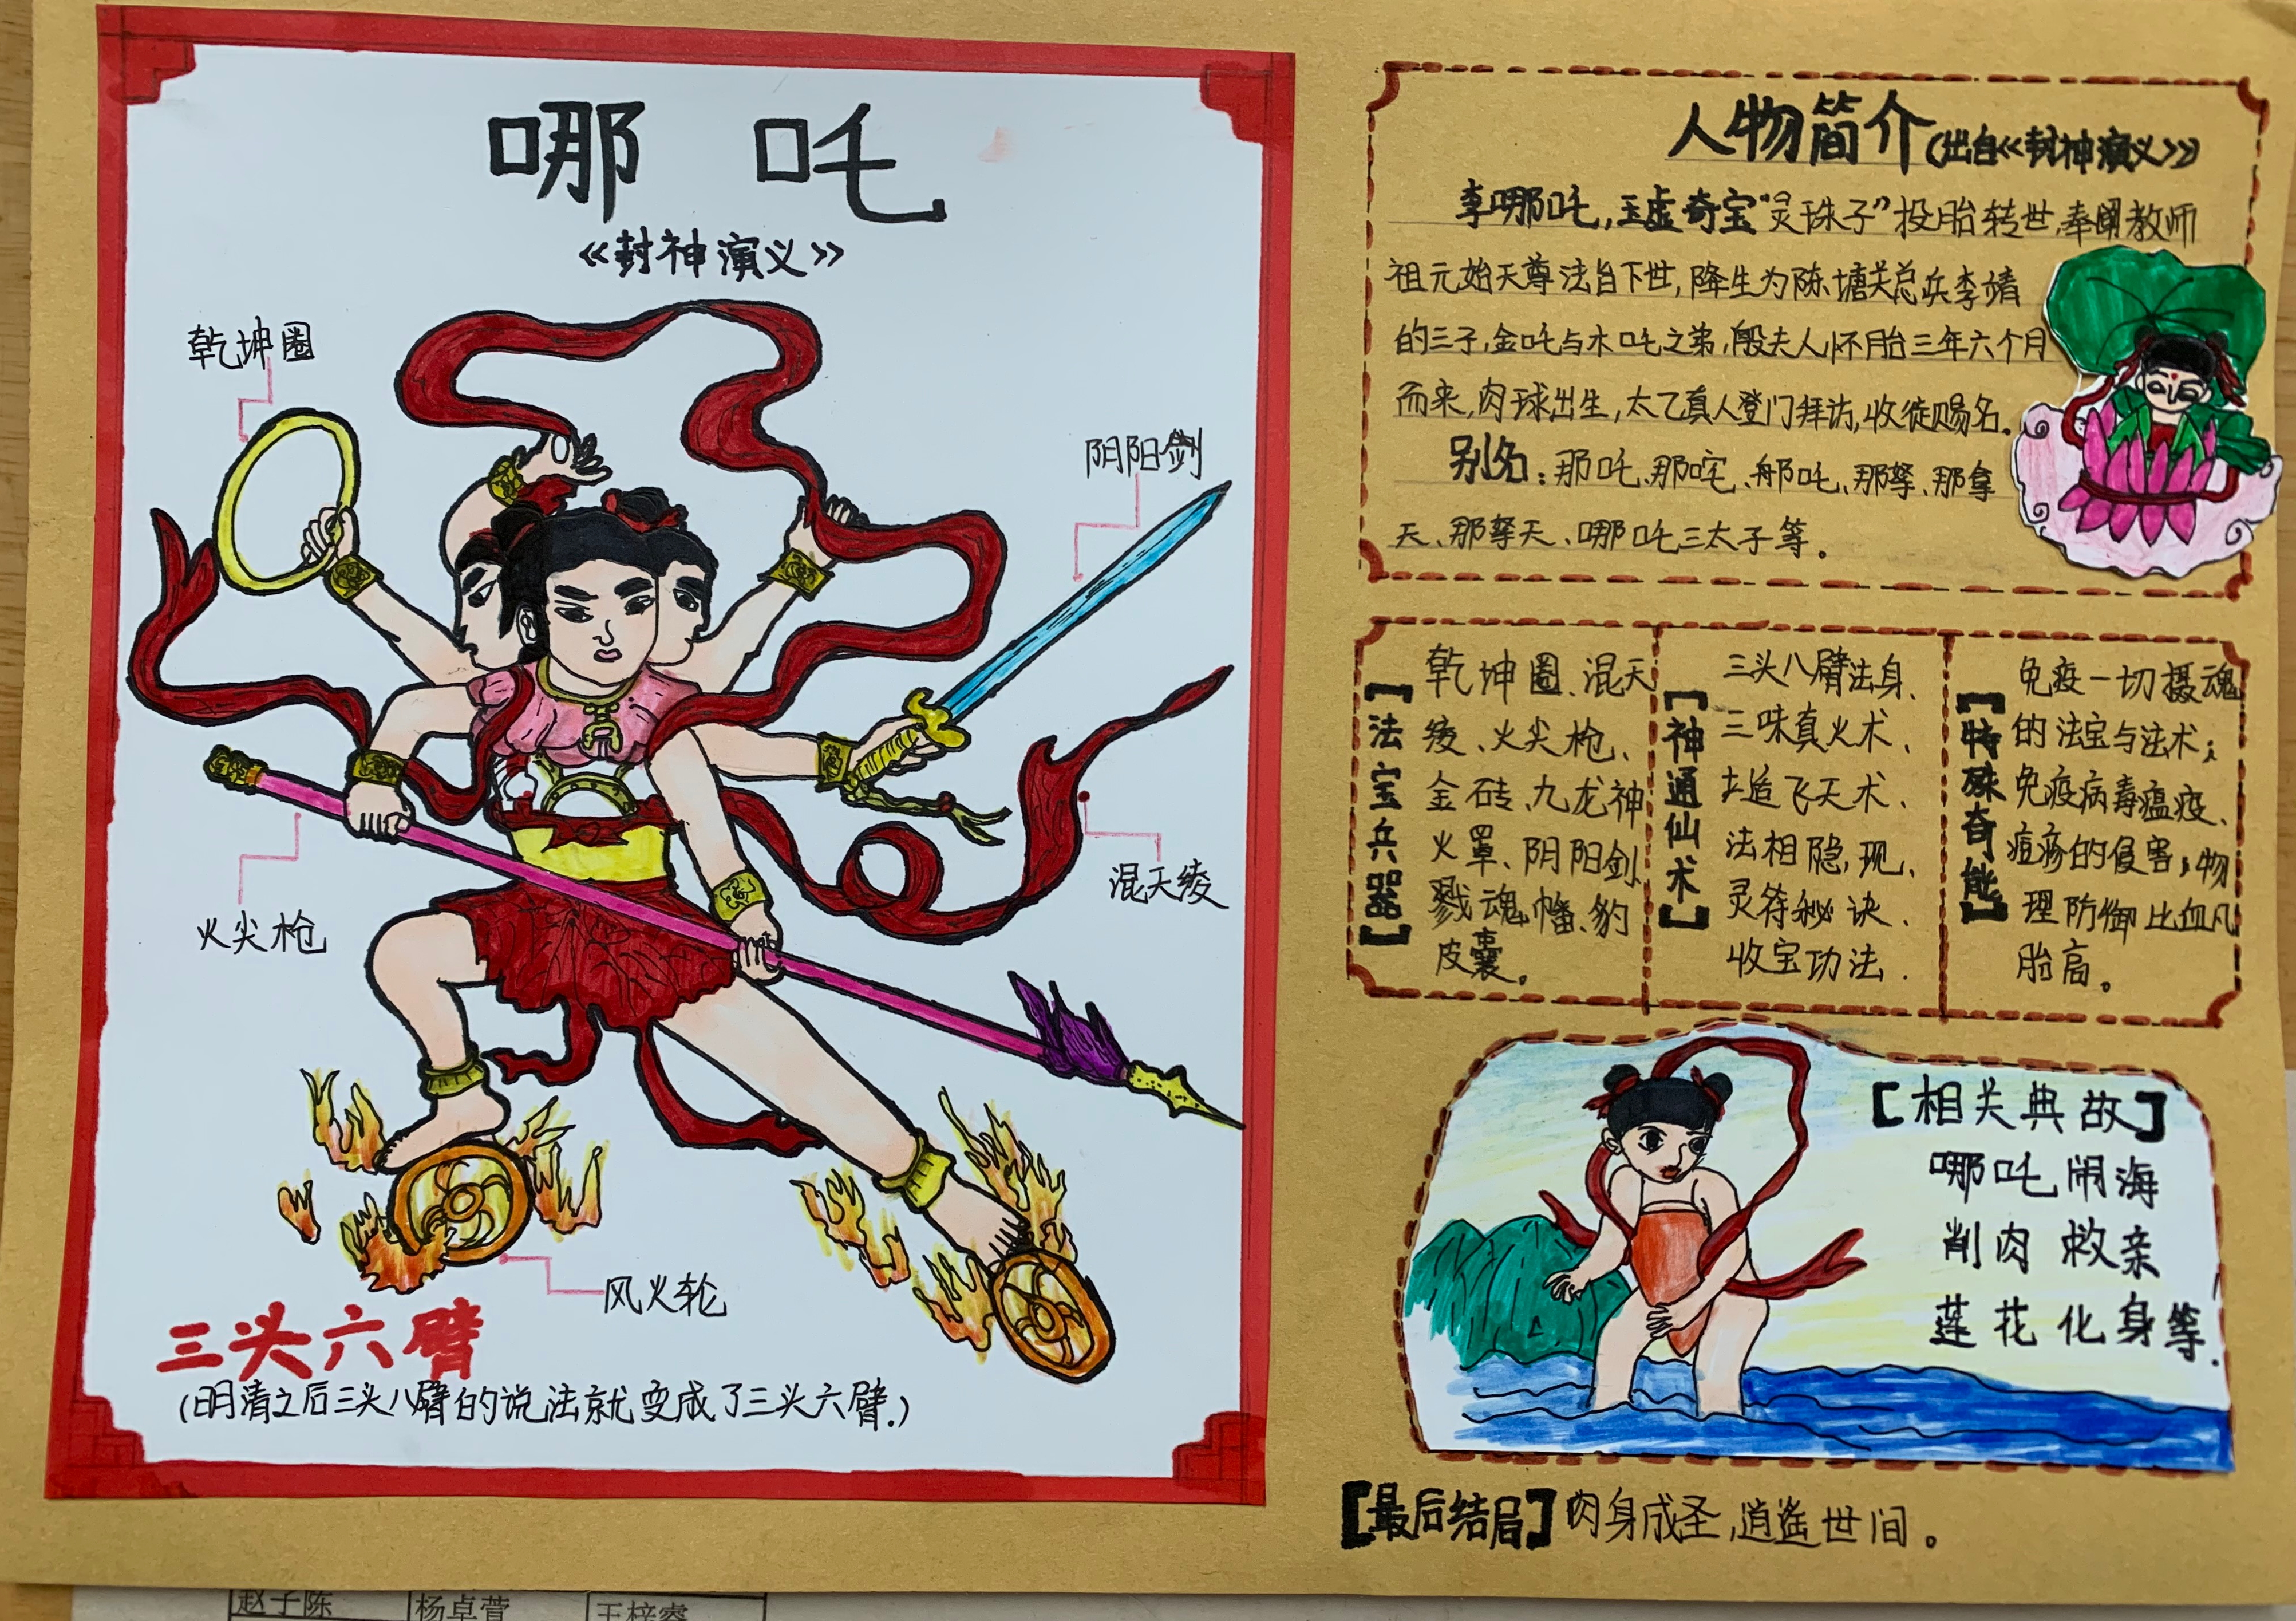 哪吒
《封神演义》
乾坤圈
阴阳剑
混天绫
火尖枪
风火轮
三头六臂
(明清之后三头八臂的说法就变成了三头六臂.)
人物简介(出自《封神演义》)
李哪吒,玉虚奇宝“灵珠子”投胎转世,奉阐教师
祖元始天尊法旨下世,降生为陈塘关总兵李靖
的三子,金吒与木吒之弟,殷夫人怀胎三年六个月
而来,肉球出生,太乙真人登门拜访,收徒赐名。
别名:那吒、那咤、那吒、那拏、那拿
天、那拏天、哪吒三太子等。
【法宝兵器】
乾坤圈、混天
绫、火尖枪、
金砖、九龙神
火罩、阴阳剑
戮魂幡、豹
皮囊。
【神通仙术】
三头八臂法身、
三味真火术、
土追飞天术、
法相隐,现、
灵符秘诀、
收宝功法.
【特殊奇能】
免疫一切摄魂
的法宝与法术;
免疫病毒瘟疫、
痘疹的侵害;物
理防御比血凡
胎高。
【相关典故】
哪吒闹海
削肉救亲
莲花化身等.
【最后结局】肉身成圣,逍遥世间。
赵子陈 杨卓萱 王梓睿